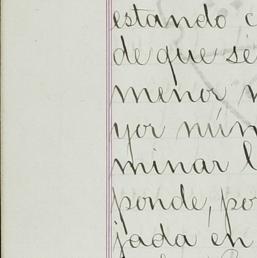 estando c
de que se
menor
yor núm
minar l
ponde, po
jada en